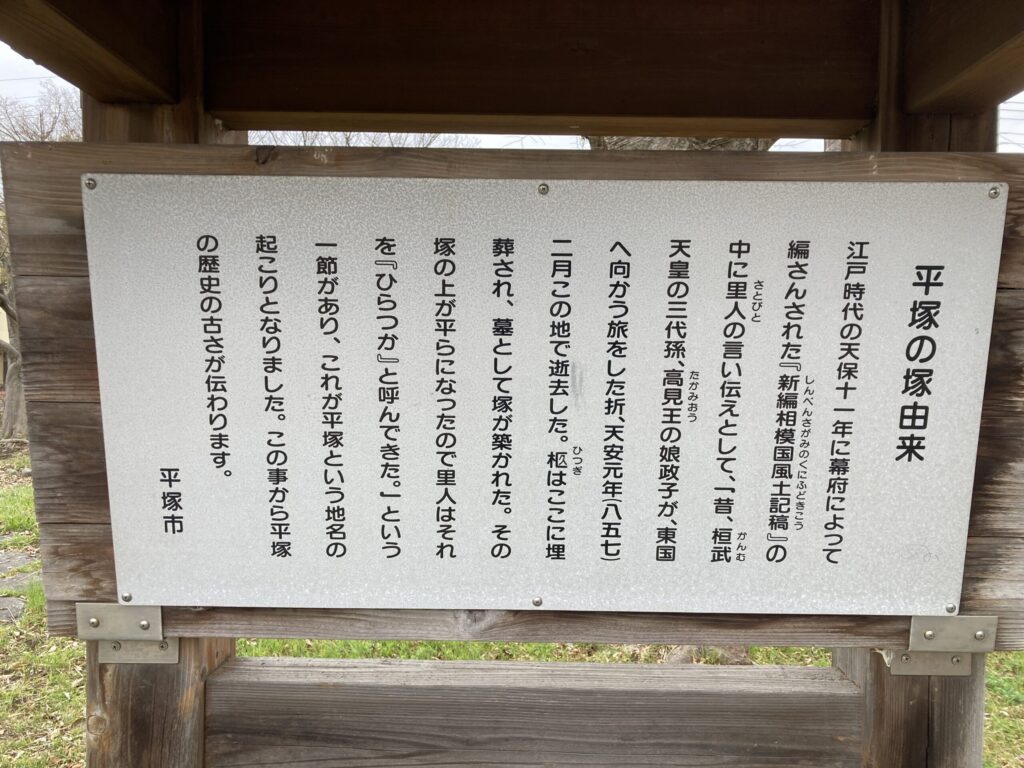 平塚の塚由来
江戸時代の天保十一年に幕府によって
編さんされた『新編相模国風土記稿』の
しんぺんさがみのくにふどきこう
中に里人の言い伝えとして、「昔、桓武
さとびと
かんむ
天皇の三代孫、高見王の娘政子が、東国
たかみおう
へ向かう旅をした折、天安元年(八五七)
二月この地で逝去した。柩はここに埋
ひつぎ
葬され、墓として塚が築かれた。その
塚の上が平らになったので里人はそれ
を『ひらつか』と呼んできた。」という
一節があり、これが平塚という地名の
起こりとなりました。この事から平塚
の歴史の古さが伝わります。
平塚市